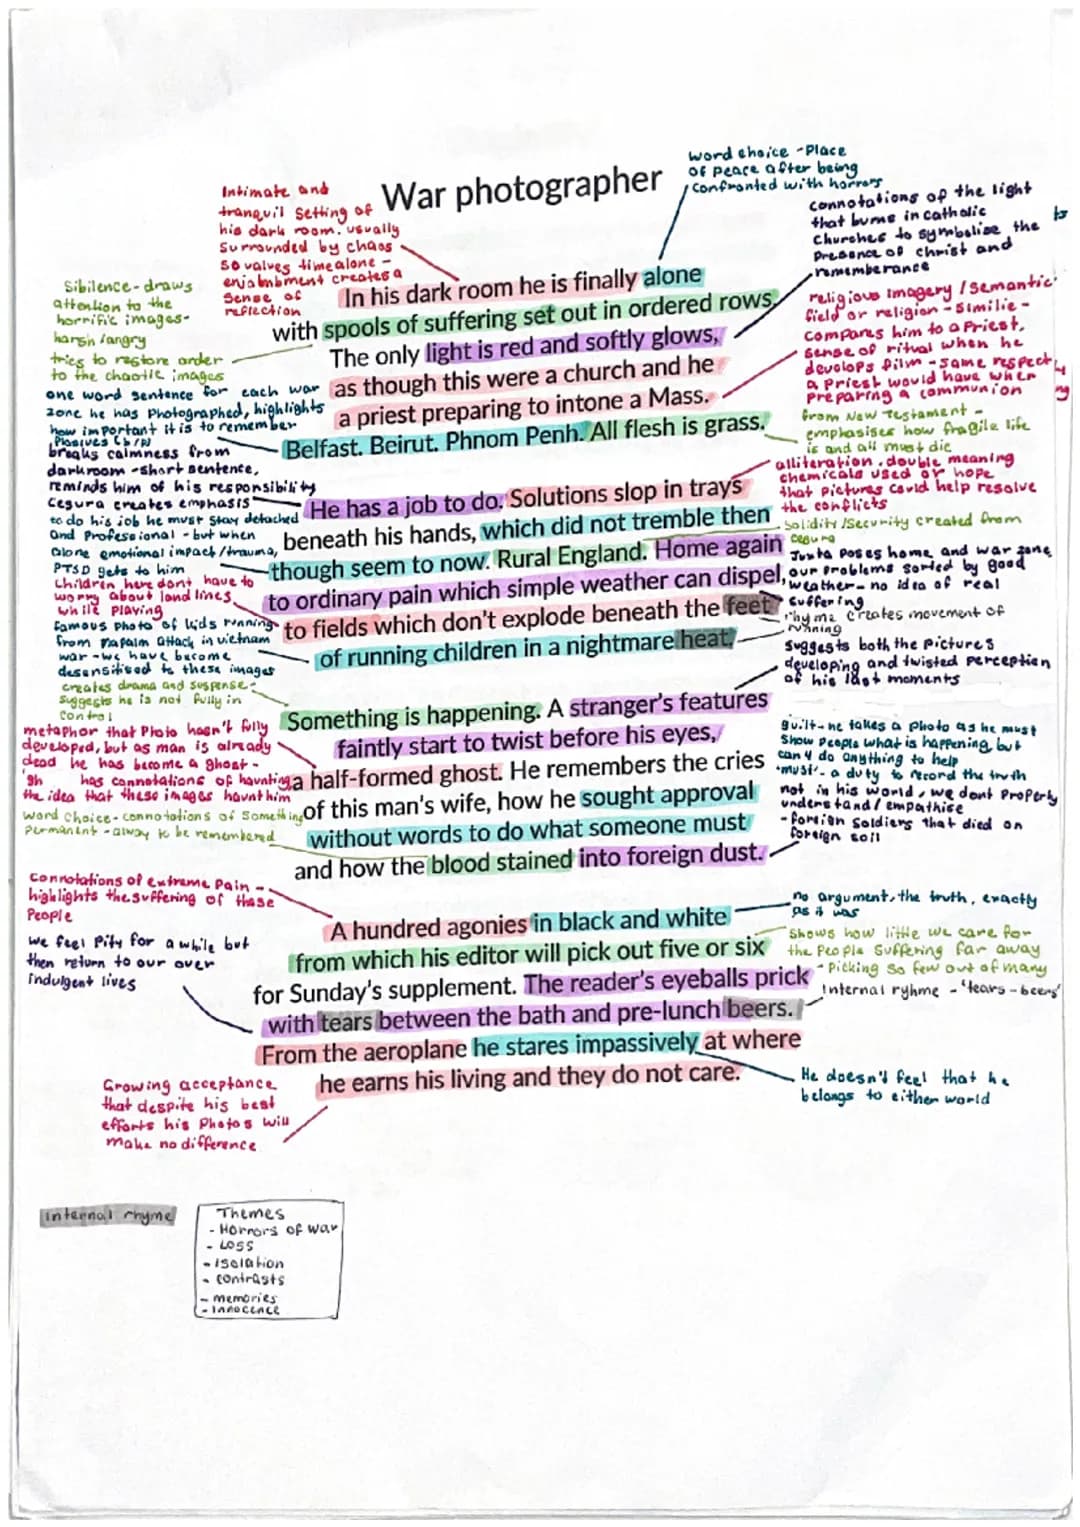 War photographer
word choice - Place
of peace after being
confronted with horrors
Intimate and
tranquil setting of
his dark room. usually
surrounded by chaos
so valves time alone -
enjabmbment creates a
sense of
reflection
connotations of the light
that burns in catholic
churches to symbolise the
presence of christ and
rememberance
to
Sibilence - draws
attention to the
horrific images -
harsh/angry
tries to restore order
to the chaotic images
religious imagery / Semantic
field or religion - Similie -
compares him to a Priest,
sense of ritual when he
develops film - same respect
a priest would have when
preparing a communion
In his dark room he is finally alone
with spools of suffering set out in ordered rows.
The only light is red and softly glows,
as though this were a church and he
a priest preparing to intone a Mass.
Belfast. Beirut. Phnom Penh. All flesh is grass.
one word sentence for each war
zone he has photographed, highlights
how important it is to remember
Plosives (b/p)
from New Testament -
emphasises how fragile life
is and all must die
breaks calmness from
darkroom - short sentence,
reminds him of his responsibility
Cegura creates emphasis
to do his job he must stay detached
and professional - but when
alone emotional impact/trauma,
PTSD gets to him
alliteration. double meaning
chemicals used or hope
that pictures could help resolve
the conflicts
solidity/security created from
cegura
He has a job to do. Solutions slop in trays
beneath his hands, which did not tremble then
though seem to now. Rural England. Home again
to ordinary pain which simple weather can dispel,
to fields which don't explode beneath the feet
of running children in a nightmare heat.
children here dont have to
worry about land lines
while playing
famous photo of kids running
from napalm attack in vietnam
war - we have become
desensitised to these images
Juxta poses home and war zone,
our problems sorted by good
weather - no idea of real
suffering
rhyme creates movement of
running
suggests both the pictures
developing and twisted perception
of his last moments
creates drama and suspense -
suggests he is not fully in
control
metaphor that photo hasn't fully
developed, but as man is already
dead he has become a ghost -
'gh has connotations of haunting
the idea that these images haunt him
word choice - connotations of something
permanent - alway to be remembered
Something is happening. A stranger's features
faintly start to twist before his eyes,
a half-formed ghost. He remembers the cries
of this man's wife, how he sought approval
without words to do what someone must
and how the blood stained into foreign dust.
guilt - he takes a photo as he must
show people what is happening, but
can't do anything to help
'must' - a duty to record the truth
not in his world, we dont properly
understand/empathise
- foreign soldiers that died on
foreign soil
connotations of extreme pain -
highlights the suffering of these
people
we feel pity for a while but
then return to our over
indulgent lives
A hundred agonies in black and white
from which his editor will pick out five or six
for Sunday's supplement. The reader's eyeballs prick
with tears between the bath and pre-lunch beers.
From the aeroplane he stares impassively at where
he earns his living and they do not care.
no argument, the truth, exactly
as it was
shows how little we care for
the people suffering far away
- Picking so few out of many
internal ryhme - 'tears - beers'
He doesn't feel that he
belongs to either world
Growing acceptance
that despite his best
efforts his photos will
make no difference
internal rhyme
Themes
- Horrors of war
- Loss
- isolation
- contrasts
- memories
- innocence